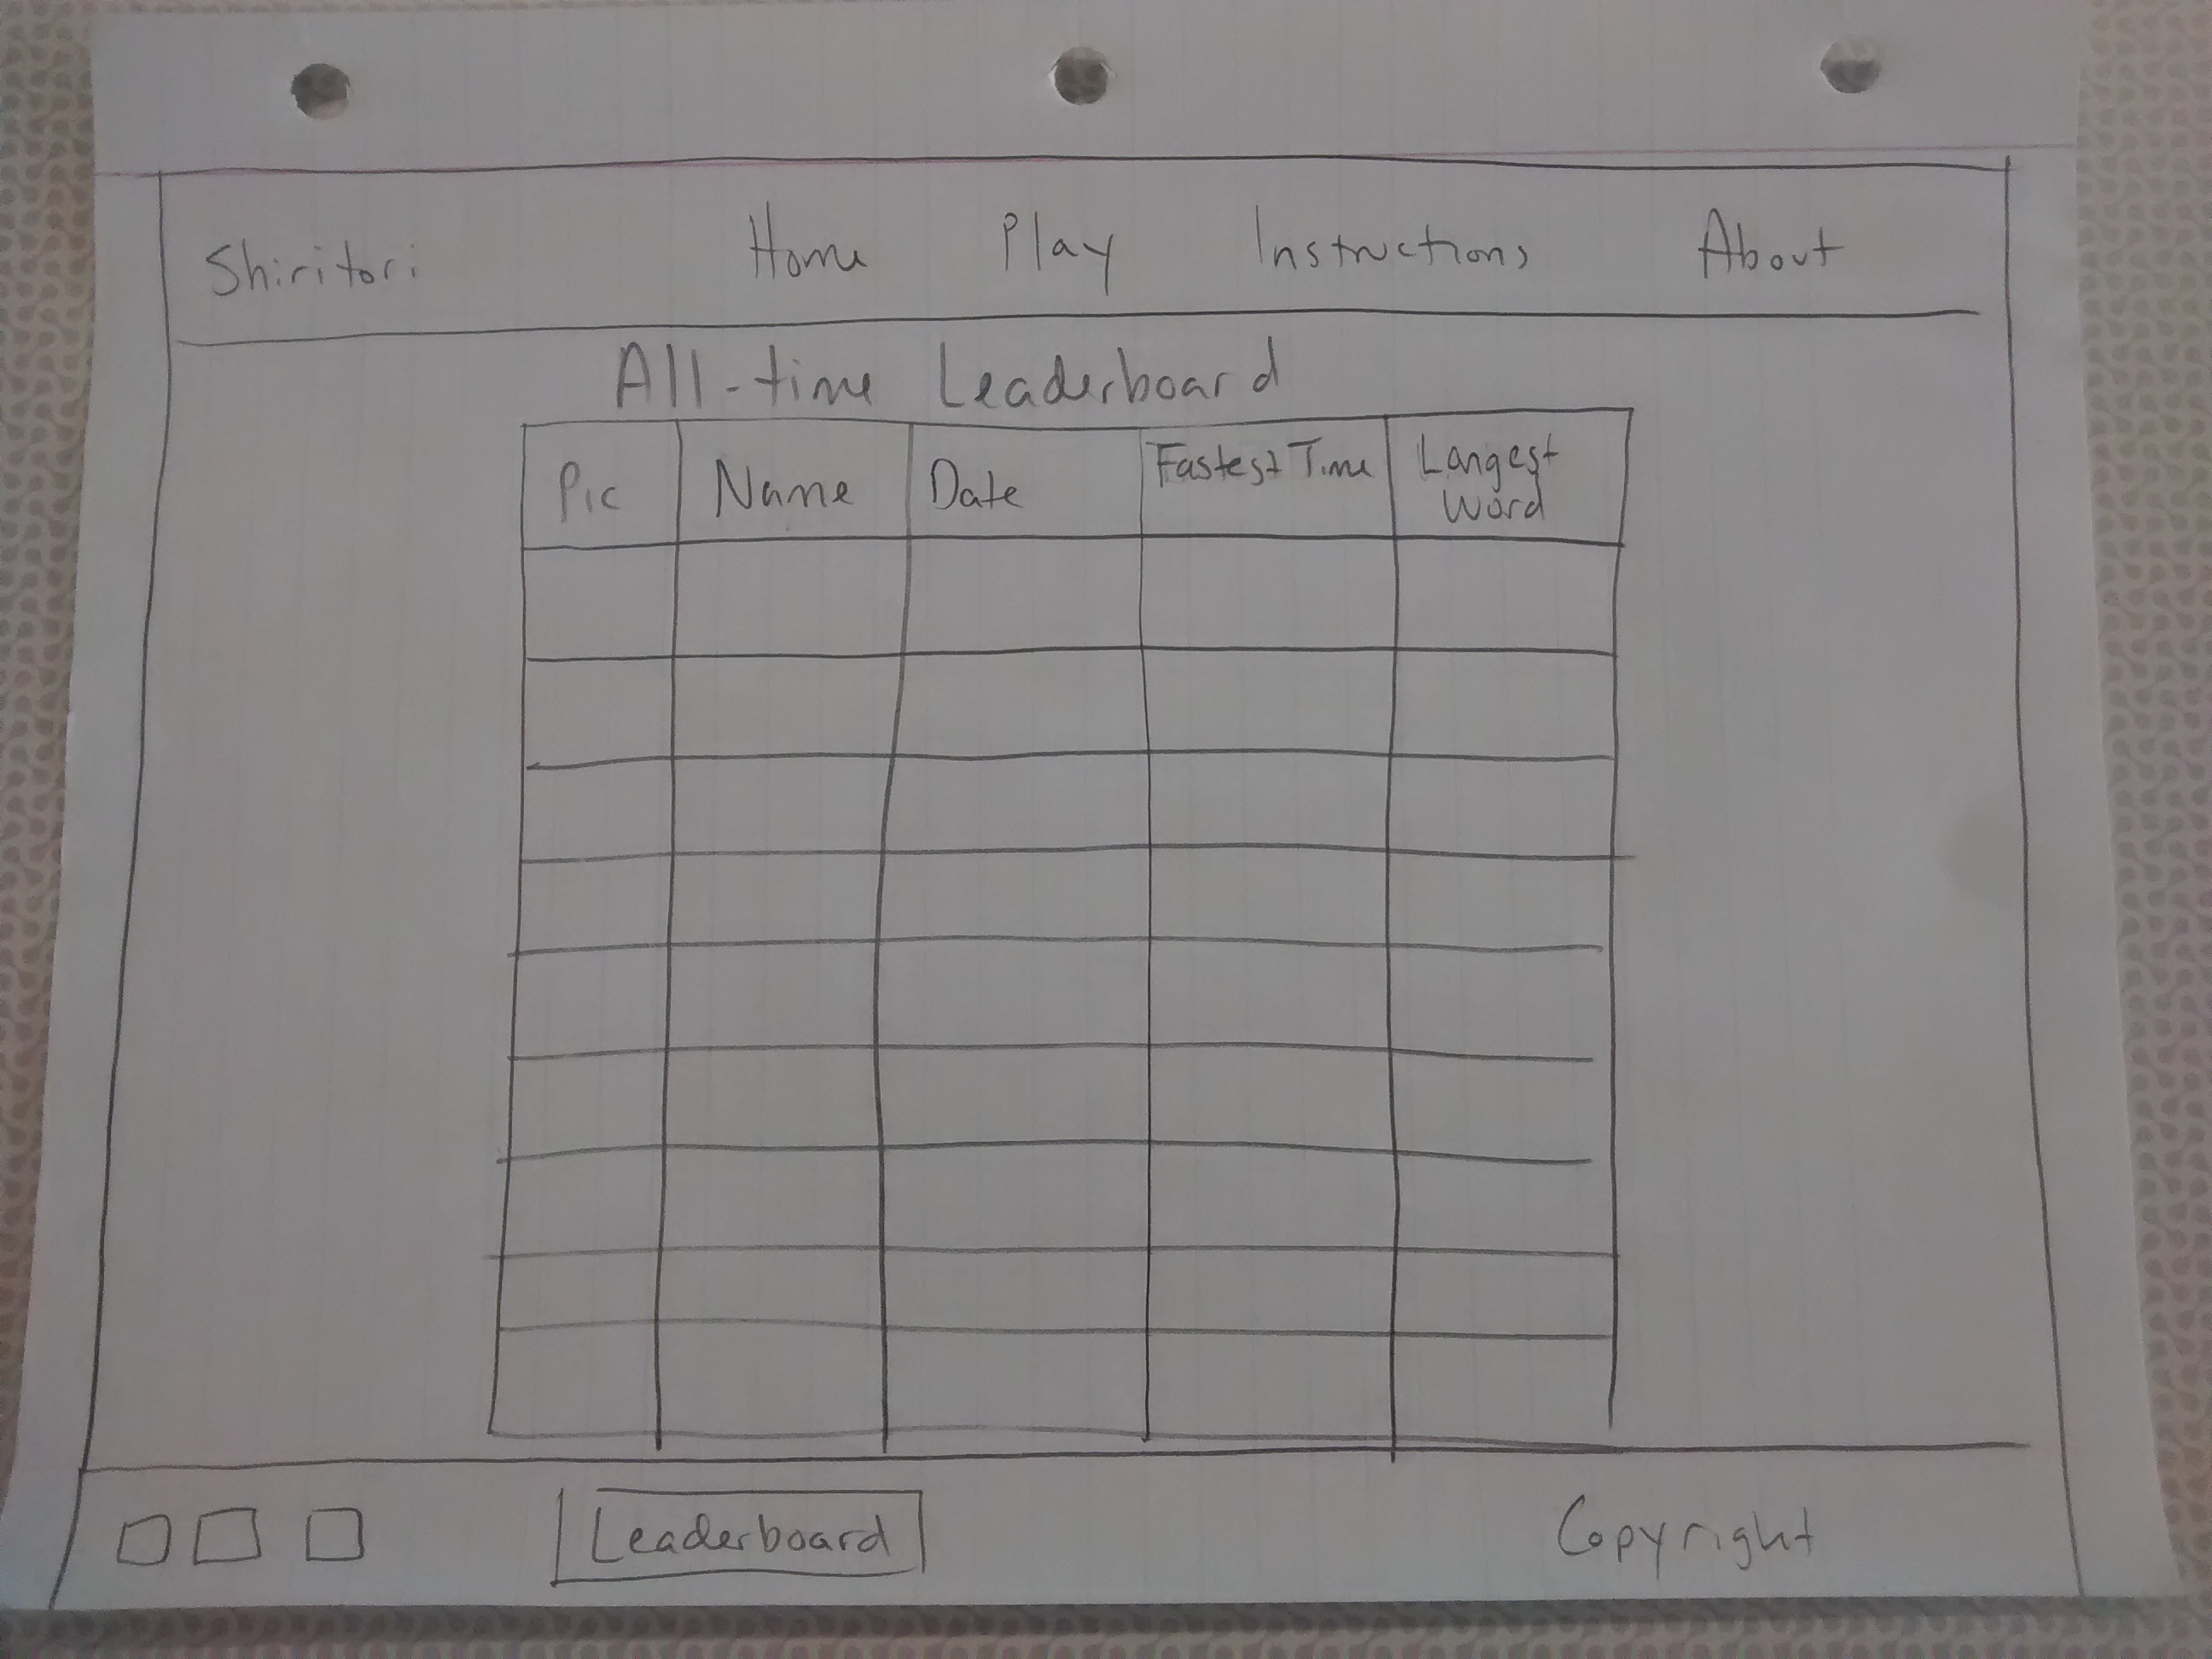 Shiritori Home Play Instructions About
All-time Leaderboard
Pic Name Date Fastest Time Longest
Word
Leaderboard Copyright